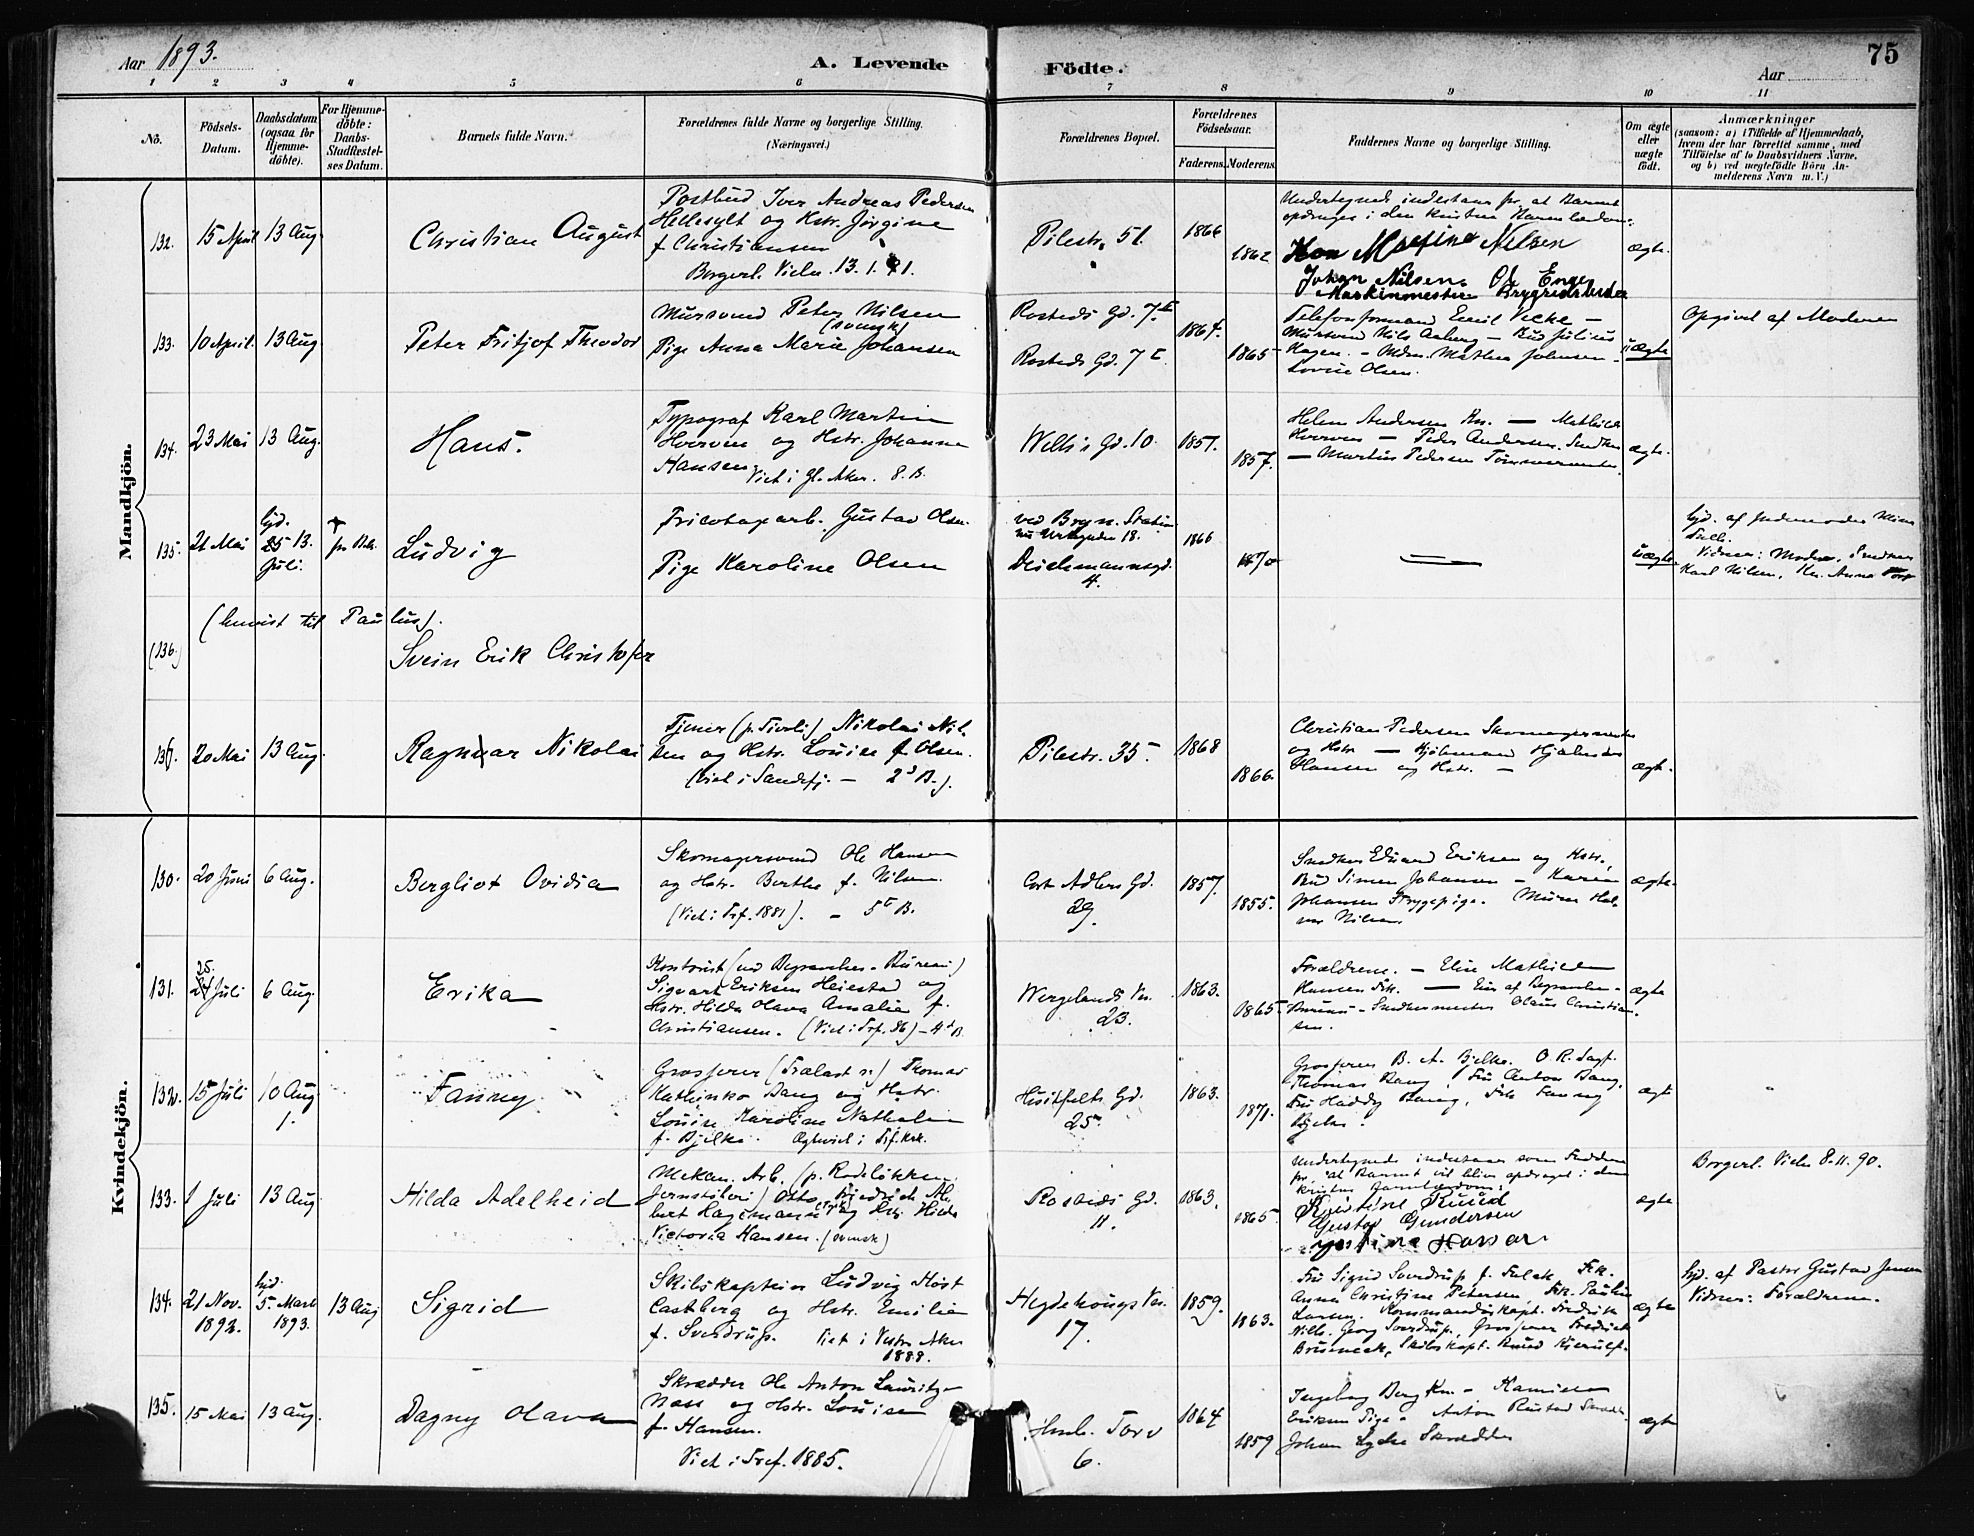 Aar 1893.
A. Levende
Födte.
Aar
75
1 2 3 4 5 6 7 8 9 10 11
No.
Födsels-Datum.
Daabsdatum (ogsaa for Hjemme-döbte).
For Hjemme-döbte: Daabs-Stadfæstel-ses Datum.
Barnets fulde Navn.
Forældrenes fulde Navne og borgerlige Stilling.
(Næringsvei.)
Forældrenes Bopæl.
Forældrenes Födselsaar.
Faderens. Moderens.
Faddernes Navne og borgerlige Stilling.
Om ægte eller uægte födt.
Anmærkninger
(saasom: a) i Tilfælde af Hjemmedaab,
hvem der har forrettet samme, med
Tilföielse af to Daabsvidners Navne,
og b) ved uægtefödte Börn An-
melderens Navn m. V.)
Mandkjön.
132. 15 April 13 Aug. Christian August
Postbud Iver Andreas Pedersen
Hellesylt og Hstr. Jørgine
f. Christiansen
Borgerl. Viede 13.1.91.
Pilestr. 51. 1866 1862
Undertegnede indestaar for, at Barnet
opdrages i den kristne Barnelærdom:
Nilsen
Johan Nilsen
Maskinmester
ægte.
133. 10 April. 13 Aug Peter Fritjof Theodor
Mursvend Peter Nilsen
(svensk)
Pige Anna Marie Johansen
Rosteds Gd. 7
Rosteds Gd. 7
1864. 1865
Telefonformand Emil
Mursvend Nils Aaberg — Bud Julius
Hagen. — Mdm. Mathea Johnsen
Lovise Olsen.
uægte
Opgivet af Moderen
134. 23 Mai 13 Aug. Hans.
Typograf Karl Martin
Horven og Hstr. Johanne
Hansen
Viet i Gl. Aker. 8. B.
10. 1851. 1857.
Helene Andersen Kn. — Mathilde
Horven — Peder Andersen, Snedker
— Martin Pedersen Tømmermester
ægte.
135. 21 Mai hjd. 13. Juli. Ludvig
Tricotagearb. Gustav Olsen.
Pige Karoline Olsen
ved Bryn Station
18.
Deichmannsgd.
4.
1866 1870
—
uægte
hjd. af Jordemoder
Vidner: Moder, Snedker
Karl Nilsen, Kn. Anna
(136.) (henvist til Paulus).
Svein Erik Christofer
136. 20 Mai 13 Aug. Ragnvar Nikolai
Tjener (p. Tivoli) Nikolai Nil-
sen og Hstr. Louise f. Olsen.
(viet i Sandefj. — 2 B.)
Pilestr. 35. 1868 1866.
Christian Pedersen Skomagermester
og Hstr. — Hjalmar
Hansen og Hstr. —
ægte.
Kvindekjön.
130. 20 Juni 6 Aug. Bergliot Ovidia
Skomagersvend Ole Hansen
og Hstr. Berthe f. Nilsen.
(Viet i Trf. 1881). — 5 B.
Cort Adlers Gd.
29.
1857. 1855.
Snedker Edvard Eriksen og Hstr.,
Bud Simen Johansen — Karen
Johansen Strygepige. Murer Hal-
vor Nilsen.
ægte.
131. 25. Juli 6 Aug. Erika
Kontorist (ved Begravelses-Bureau)
Sigvart Eriksen Heiestad og
Hstr. Hilda Olava Amalie f.
Christiansen. (Viet i Trf. 86) — 4 B.
Wergelands Vn.
23.
1863. 1865.
Forældrene. — Elise Mathilde
Hansen Frk. — Eier af Begravelses-
Bureau — Snedkermester Olaus Christian-
sen.
ægte
132. 15 Juli 10 Aug. Fanny.
Grosserer (Trælast) Thomas
Kathinko Bang og Hstr.
Louise Karoline Nathalie
f. Bjelke. Ægteviet i Trf. Krk.
Huitfelts Gd.
25.
1863. 1871.
Grosserer B. A. Bjelke. O. R. Sagf.
Thomas Bang, Fru Anton Bang,
Fru Haddy Bang, Frk Fanny
Bjelke.
ægte
133. 1 Juli 13 Aug Hilda Adelheid
Mekan. Arb. (p. Rodeløkken
Jernstøberi) Otto Friedrich Al-
bert Hagemann og Hstr. Hilda
Victoria Hansen. (svensk)
Rosteds Gd.
11.
1863. 1865.
Undertegnede indestaar som Faddere
for, at Barnet vil blive opdraget i den
kristne Barnelærdom:
Kristine Ruud
Gustav Gundersen
ægte
Borgerl. Viede 8.11.90.
134. 21 Nov. 1892. hjd. 5. Marts 1893. 13 Aug Sigrid
Skibskaptein Ludvig Høst
Castberg og Hstr. Emilie
f. Sverdrup. Viet i Vestre Aker
1888.
Hegdehougs Vn.
17.
1859. 1863.
Fru Sigrid Sverdrup f. Falck, Frk.
Anna Christine Petersen, Frk. Pauline
Kommandørkapt. Fredrik
Georg Sverdrup, Grosserer Fredrick
Skibskapt. Knud Kierulf.
ægte
hjd. af Pastor Gustav Jensen
Vidner: Forældrene.
135. 15 Mai 13 Aug. Dagny Olava
Skrædder Ole Anton Lauritz
Nass og Hstr. Louise
f. Hansen.
Viet i Tref. 1885.
Torv
6.
1864 1859
Ingeborg Berg Kn. — Hanna
Eriksen Pige — Anton Rustad
Johan Lydia Skrædder
ægte